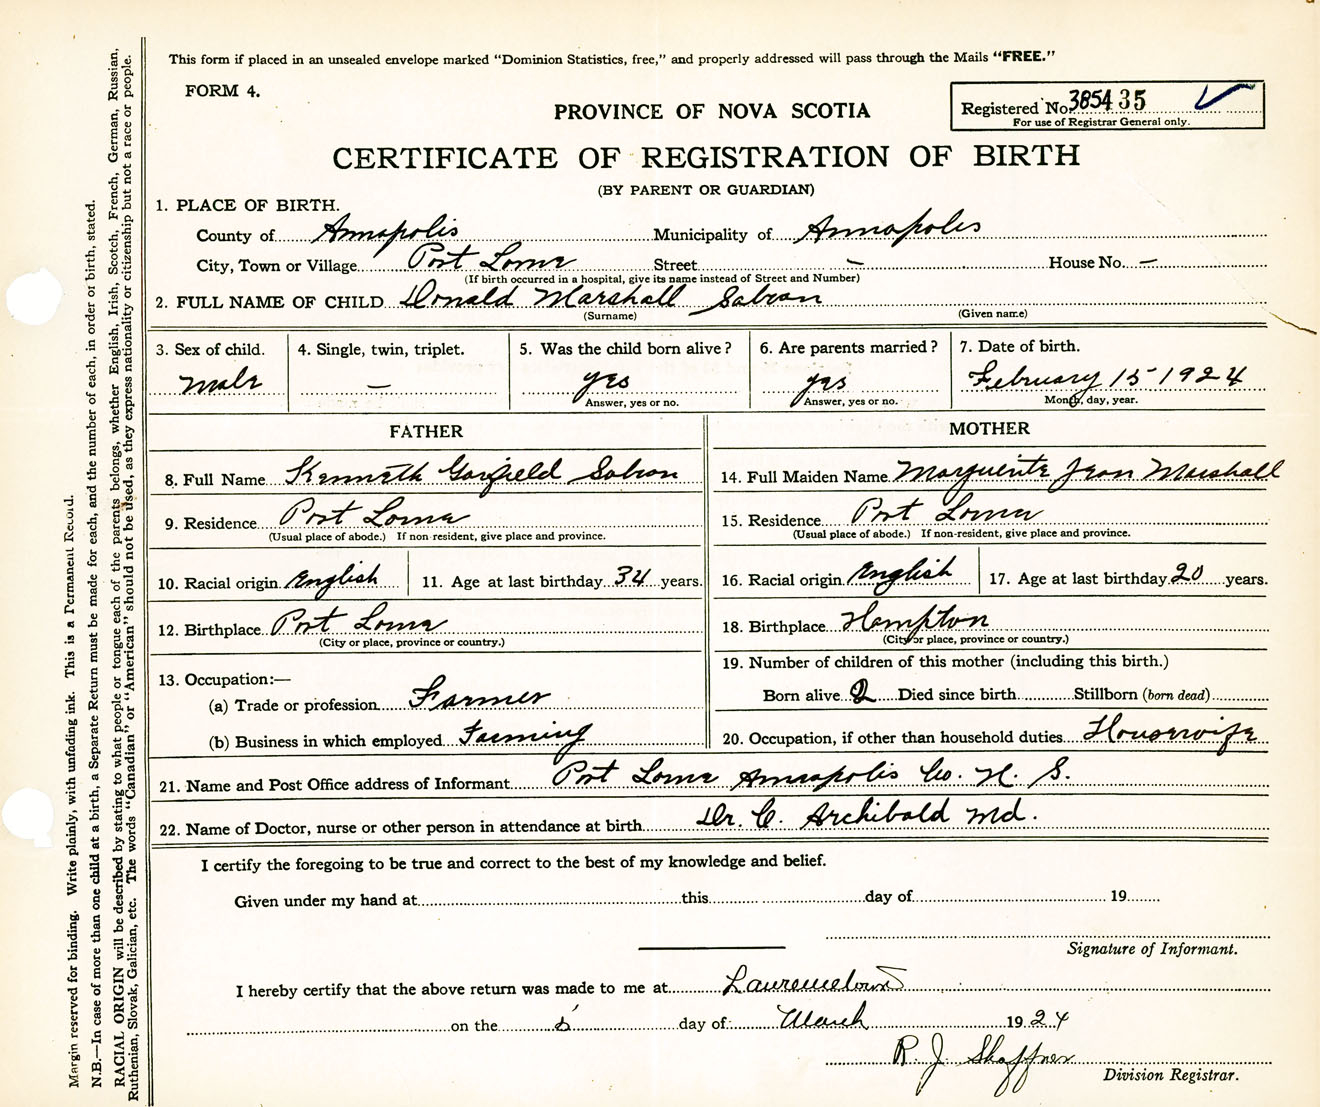 This form if placed in an unsealed envelope marked "Dominion Statistics, free," and properly addressed will pass through the Mails "FREE."
FORM 4.
PROVINCE OF NOVA SCOTIA
Registered No. 3854 35
For use of Registrar General only.
CERTIFICATE OF REGISTRATION OF BIRTH
(BY PARENT OR GUARDIAN)
1. PLACE OF BIRTH.
County of Annapolis Municipality of Annapolis
City, Town or Village Port Lorne Street — House No. —
(If birth occurred in a hospital, give its name instead of Street and Number)
2. FULL NAME OF CHILD Donald Marshall Sabean
(Surname) (Given name)
3. Sex of child. Male
4. Single, twin, triplet. —
5. Was the child born alive? yes
Answer, yes or no.
6. Are parents married? yes
Answer, yes or no.
7. Date of birth. February 15 1924
Month, day, year.
FATHER
8. Full Name Kenneth Garfield Sabean
9. Residence Port Lorne
(Usual place of abode.) If non-resident, give place and province.
10. Racial origin English 11. Age at last birthday 34 years.
12. Birthplace Port Lorne
(City or place, province or country.)
13. Occupation:—
(a) Trade or profession Farmer
(b) Business in which employed Farming
MOTHER
14. Full Maiden Name Marguerite Jean Marshall
15. Residence Port Lorne
(Usual place of abode.) If non-resident, give place and province.
16. Racial origin English 17. Age at last birthday 20 years.
18. Birthplace Hampton
(City or place, province or country.)
19. Number of children of this mother (including this birth.)
Born alive 2 Died since birth Stillborn (born dead)
20. Occupation, if other than household duties Housewife
21. Name and Post Office address of Informant Port Lorne Annapolis Co. N. S.
22. Name of Doctor, nurse or other person in attendance at birth Dr. C. Archibald Md.
I certify the foregoing to be true and correct to the best of my knowledge and belief.
Given under my hand at this day of 19
Signature of Informant.
I hereby certify that the above return was made to me at Lawrencetown
on the 5 day of March 1924
R. J. Shaffner
Division Registrar.
Margin reserved for binding. Write plainly, with unfading ink. This is a Permanent Record.
N.B.—In case of more than one child at a birth, a Separate Return must be made for each, and the number of each, in order of birth, stated.
RACIAL ORIGIN will be described by stating to what people or tongue each of the parents belongs, whether English, Irish, Scotch, French, German, Russian,
Ruthenian, Slovak, Galician, etc. The words "Canadian" or "American" should not be used, as they express nationality or citizenship but not a race or people.